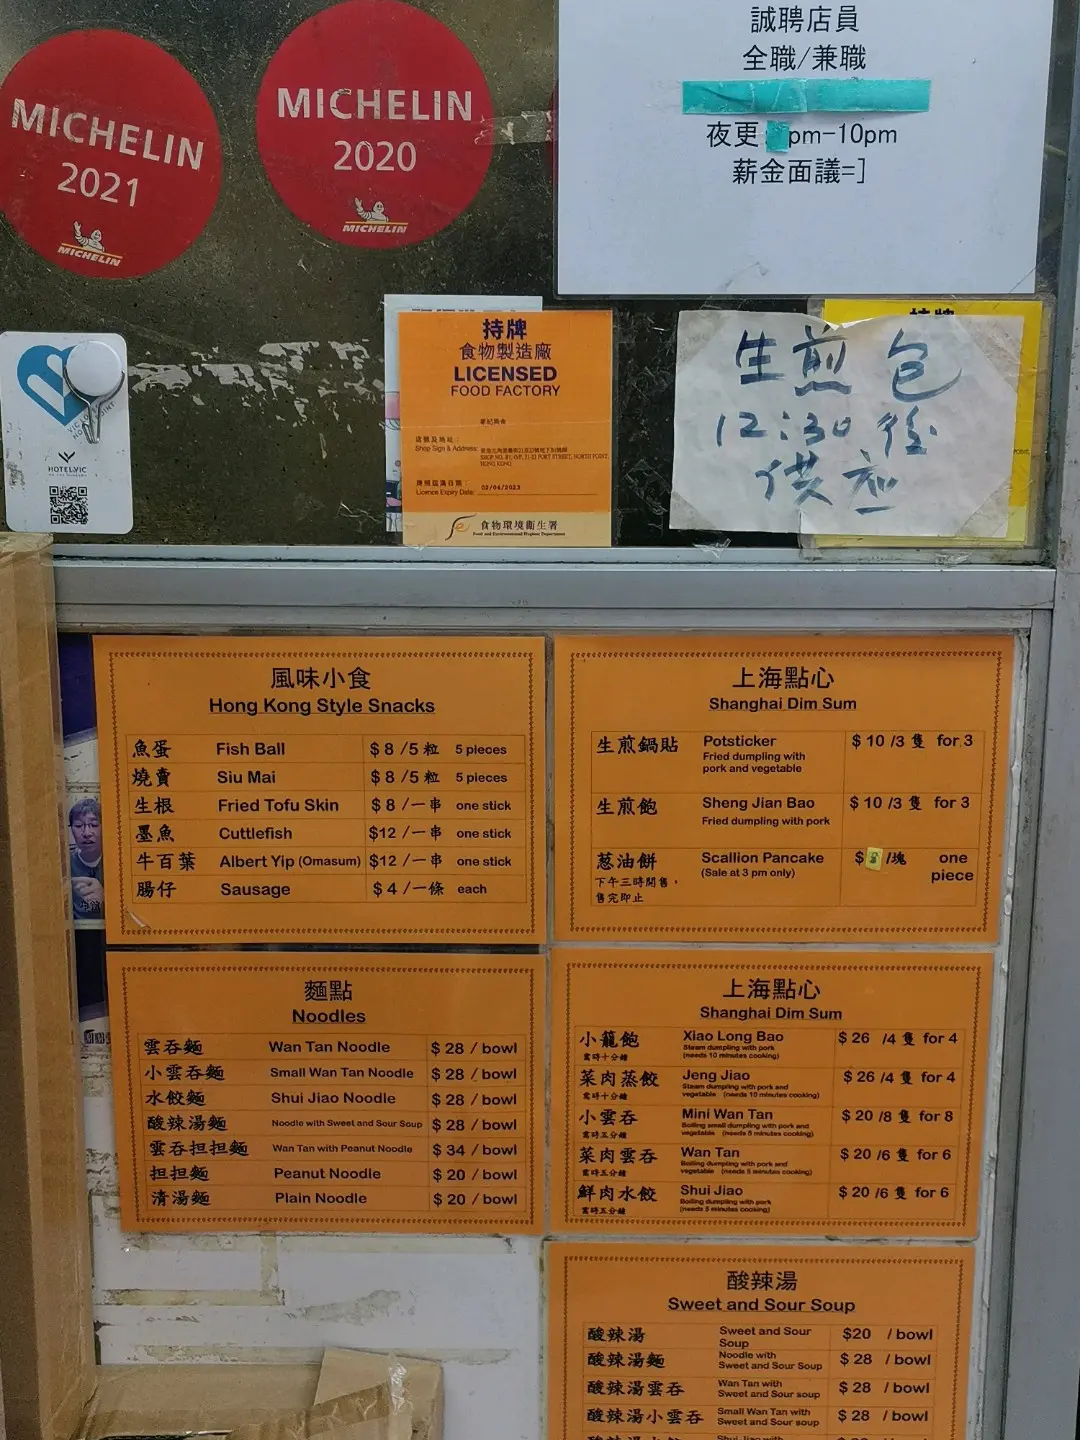 MICHELIN
2021
MICHELIN
MICHELIN
2020
MICHELIN
誠聘店員
全職/兼職
夜更 pm-10pm
薪金面議=]
HOTEL VIC
持牌
食物製造廠
LICENSED
FOOD FACTORY
店號及地址:
Shop Sign & Address:
HONG KONG
牌照屆滿日期:
Licence Expiry Date: 02/04/2023
食物環境衞生署
Food and Environmental Hygiene Department
持牌
生煎包
12:30後
供應
風味小食
Hong Kong Style Snacks
魚蛋 Fish Ball $ 8 /5 粒 5 pieces
燒賣 Siu Mai $ 8 /5 粒 5 pieces
生根 Fried Tofu Skin $ 8 /一串 one stick
墨魚 Cuttlefish $12 /一串 one stick
牛百葉 Albert Yip (Omasum) $12 /一串 one stick
腸仔 Sausage $ 4 /一條 each
上海點心
Shanghai Dim Sum
生煎鍋貼 Potsticker $ 10 /3 隻 for 3
Fried dumpling with
pork and vegetable
生煎飽 Sheng Jian Bao $ 10 /3 隻 for 3
Fried dumpling with pork
葱油餅 Scallion Pancake $ 8 /塊 one
piece
(Sale at 3 pm only)
下午三時開售，
售完即止
麵點
Noodles
雲吞麵 Wan Tan Noodle $ 28 / bowl
小雲吞麵 Small Wan Tan Noodle $ 28 / bowl
水餃麵 Shui Jiao Noodle $ 28 / bowl
酸辣湯麵 Noodle with Sweet and Sour Soup $ 28 / bowl
雲吞担担麵 Wan Tan with Peanut Noodle $ 34 / bowl
担担麵 Peanut Noodle $ 20 / bowl
清湯麵 Plain Noodle $ 20 / bowl
上海點心
Shanghai Dim Sum
小籠飽 Xiao Long Bao $ 26 /4 隻 for 4
Steam dumpling with pork
需時十分鐘 (needs 10 minutes cooking)
菜肉蒸餃 Jeng Jiao $ 26 /4 隻 for 4
Steam dumpling with pork and
需時十分鐘 vegetable (needs 10 minutes cooking)
小雲吞 Mini Wan Tan $ 20 /8 隻 for 8
Boiling small dumpling with pork and
需時五分鐘 vegetable (needs 5 minutes cooking)
菜肉雲吞 Wan Tan $ 20 /6 隻 for 6
Boiling dumpling with pork and
需時五分鐘 vegetable (needs 5 minutes cooking)
鮮肉水餃 Shui Jiao $ 20 /6 隻 for 6
Boiling dumpling with pork
需時五分鐘 (needs 5 minutes cooking)
酸辣湯
Sweet and Sour Soup
酸辣湯 Sweet and Sour
Soup $20 / bowl
酸辣湯麵 Noodle with
Sweet and Sour Soup $ 28 / bowl
酸辣湯雲吞 Wan Tan with
Sweet and Sour soup $ 28 / bowl
酸辣湯小雲吞 Small Wan Tan with
Sweet and Sour soup $ 28 / bowl